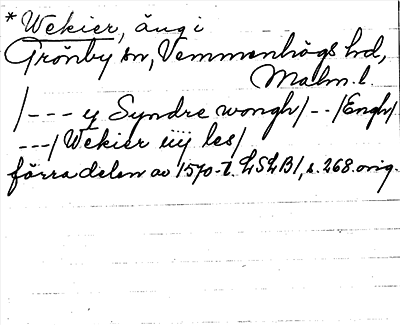 *Wekier, äng i
Grönby sn, Vemmenhögs hd,
Malm. l.
/--- y Syndre wongh/--/Engh/
---/Wekier iiij les/
förra delen av 1570-t. LSLB1, s. 268. orig.